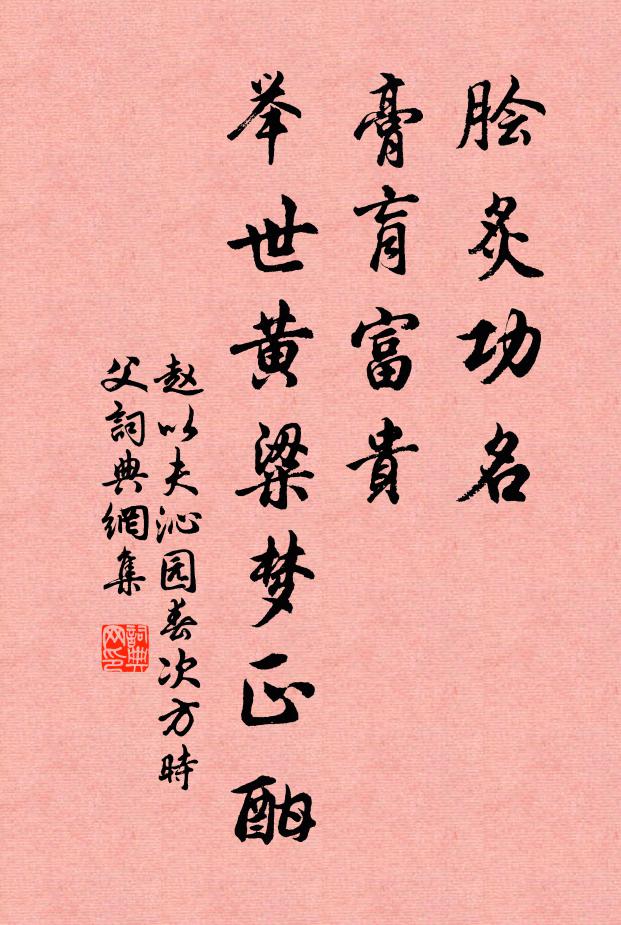 脍炙功名
膏肓富貴
举世黄粱梦正酣
赵以夫沁园春次方時
父詞典網集
詞典
网印